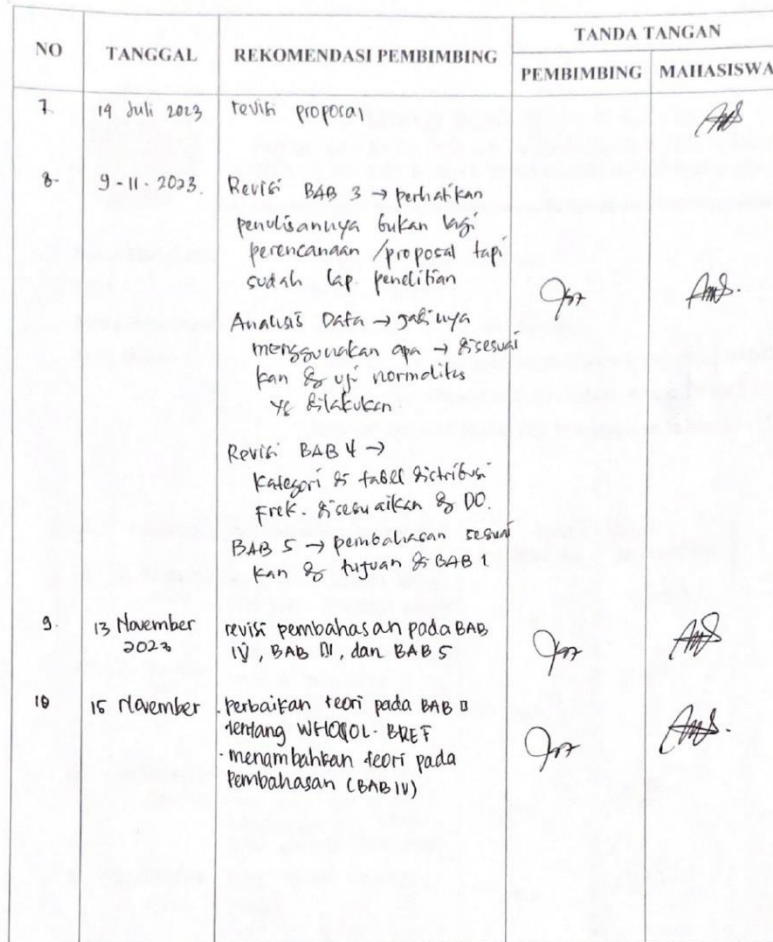 NO TANGGAL REKOMENDASI PEMBIMBING TANDA TANGAN
PEMBIMBING MAHASISWA
7. 14 Juli 2023 revisi proposal
8. 9-11-2023. Revisi BAB 3 → perhatikan
penulisannya bukan lagi
perencanaan /proposal tapi
sudah lap. penelitian
Analisis Data → jadinya
menggunakan apa → disesuai
kan dg uji normalitas
yg dilakukan.
Revisi BAB 4 →
Kategori di tabel distribusi
Frek. disesuaikan dg DO.
BAB 5 → pembahasan sesuai
kan dg tujuan di BAB 1
9. 13 November revisi pembahasan pada BAB
2023 IV, BAB III, dan BAB 5
10 15 November . Perbaikan teori pada BAB II
tentang WHOQOL-BREF
. menambahkan teori pada
Pembahasan (BAB IV)